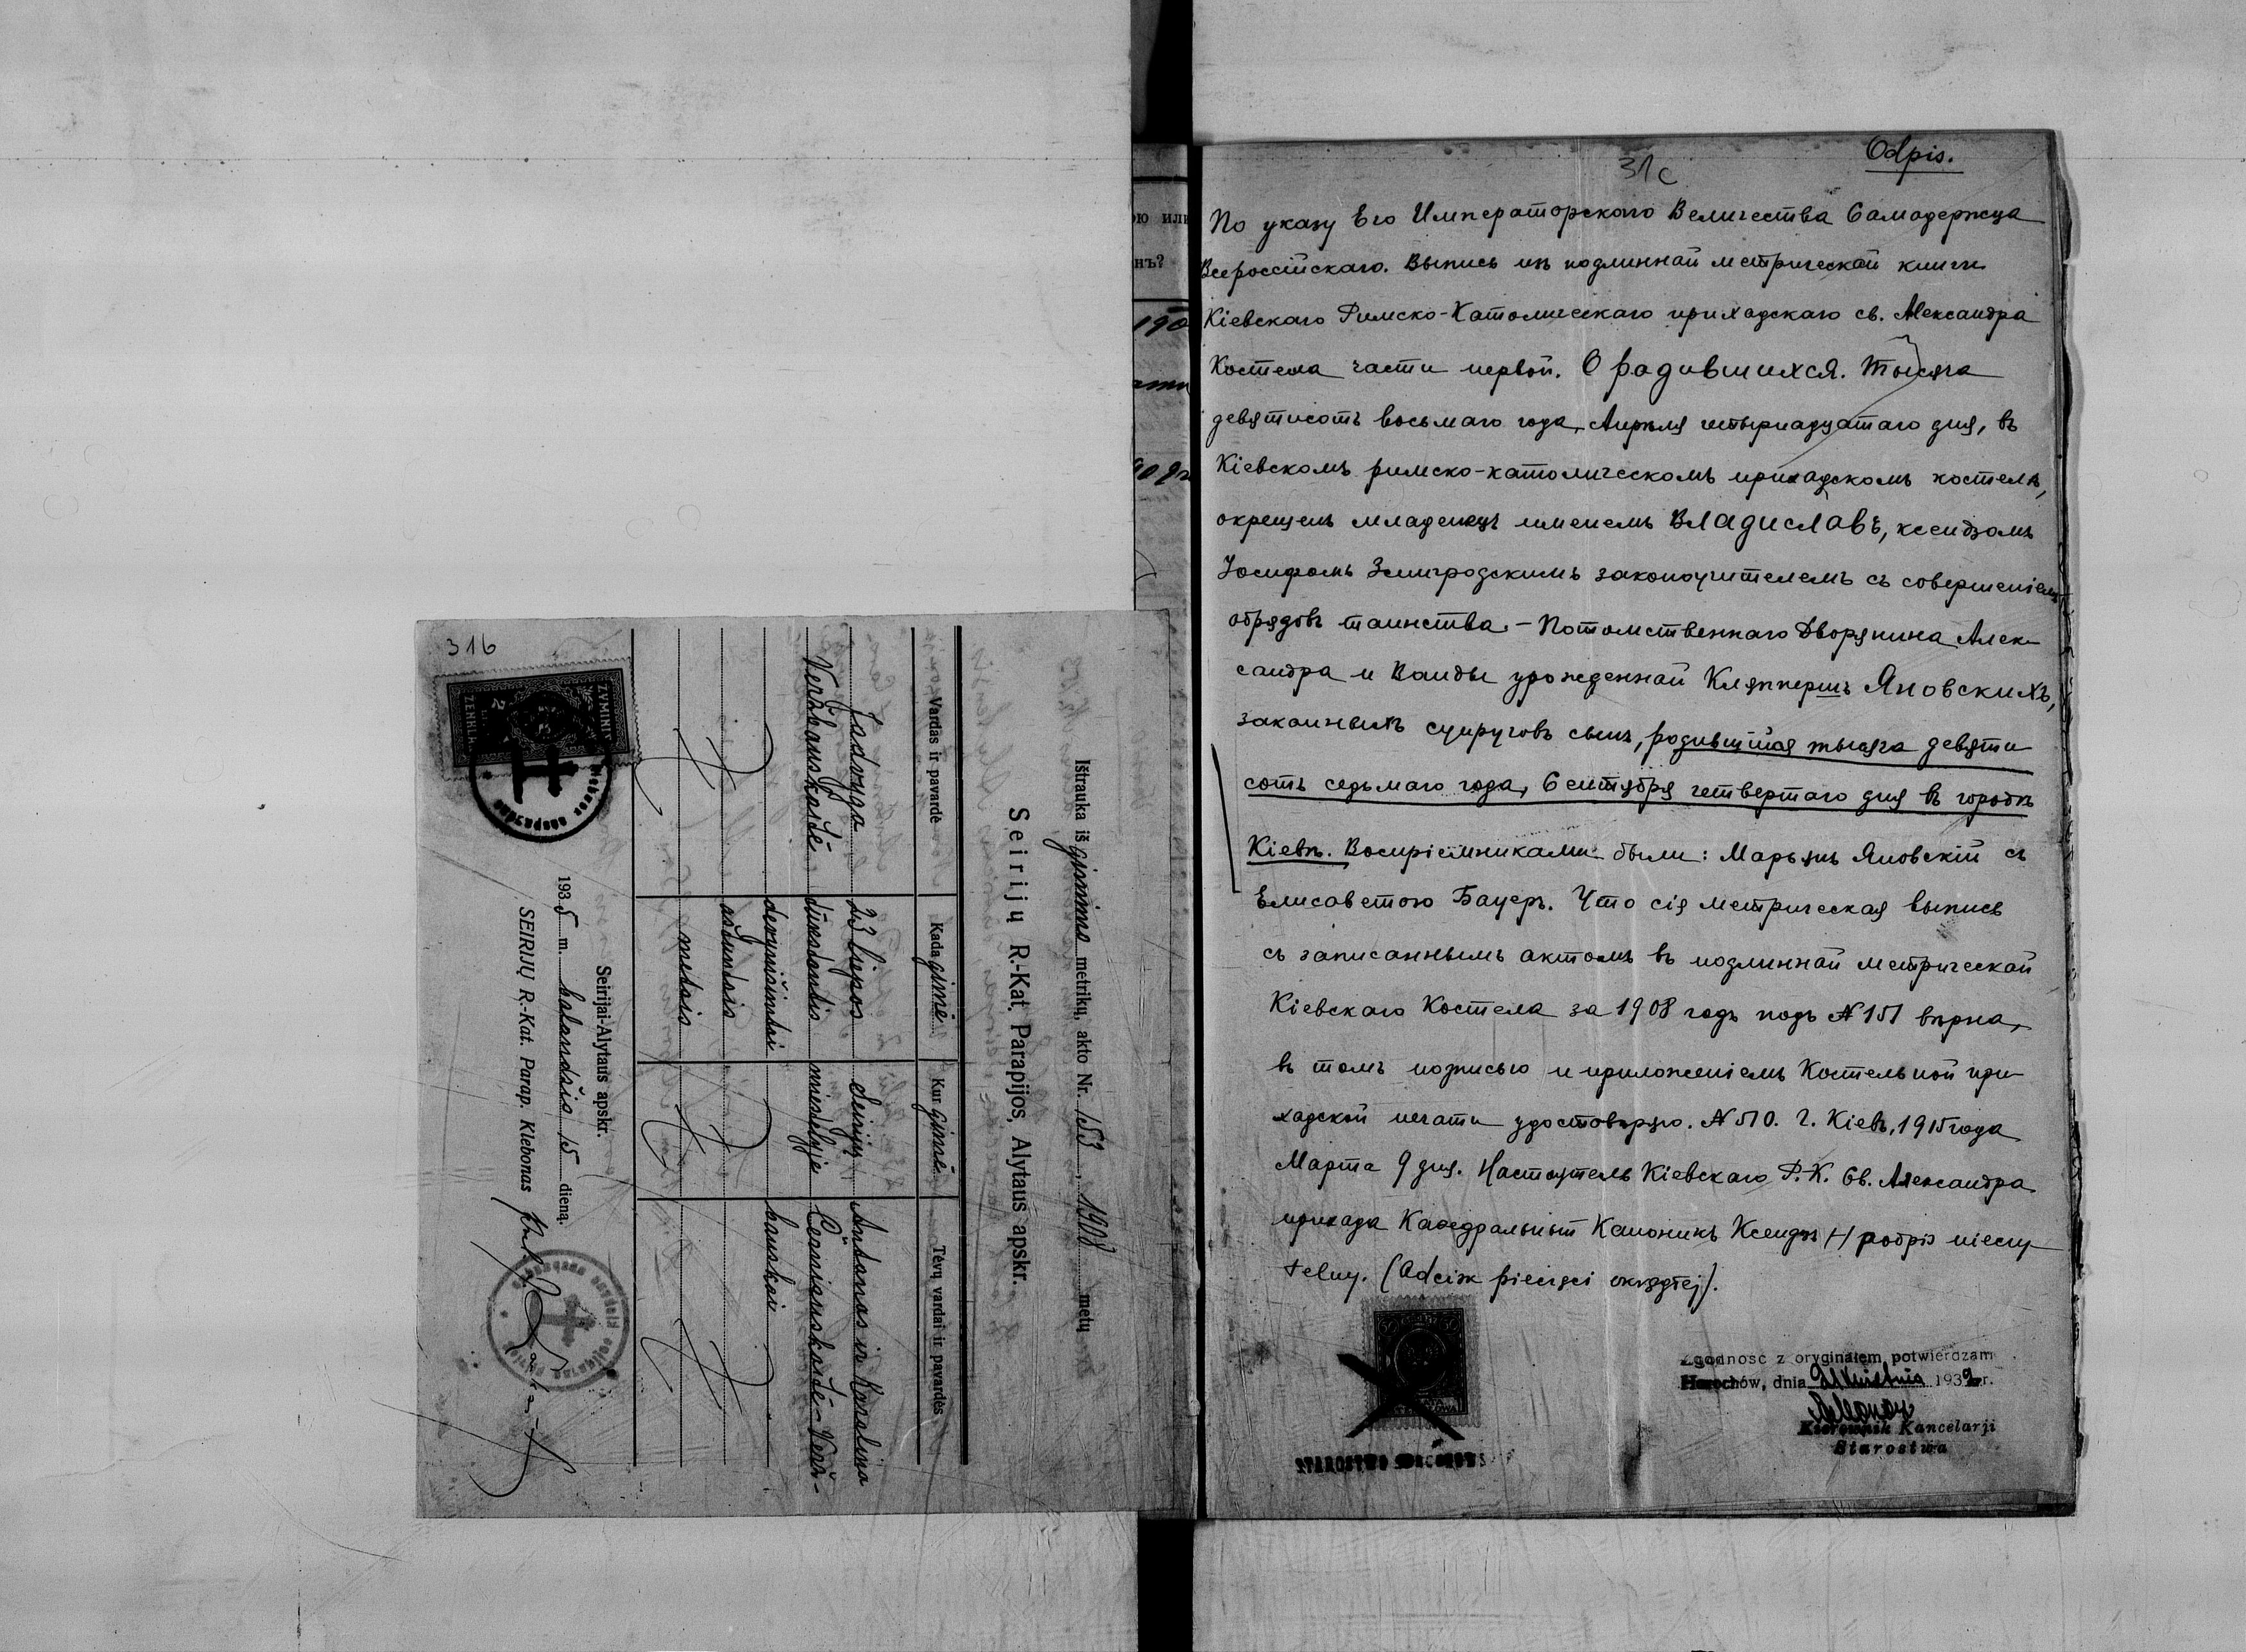 316
Ištrauka iš gimimo metrikų, akto Nr. 153, 1908 metų
Seirijų R.-Kat. Parapijos, Alytaus apskr.
Vardas ir pavardė
Kada gimė
Kur gimė
Tėvų vardai ir pavardės
Jadvyga
23 liepos
Seirijų
Antanas ir Karolina
tūkstantis
miestelyje
devynišimtai
aštuntais
metais
Seirijai-Alytaus apskr.
1935 m. balandžio 15 dieną.
SEIRIJŲ R.-Kat. Parap. Klebonas
ZENKLA
ою или
нъ?
190
Odpis.
31c
По указу Его Императорскаго Величества Самодержца
Всероссійскаго. Выпись изъ подлинной метрической книги
Кіевскаго Римско-Католическаго приходскаго св. Александра
Костела части первой. О радившихся. Тысяча
девятисотъ восьмаго года, Апрѣля четырнадцатаго дня, въ
Кіевскомъ римско-католическомъ приходскомъ костелѣ,
окрещенъ младенецъ именемъ Владиславъ, ксендзомъ
Іосифомъ Змигродскимъ законоучителемъ съ совершеніемъ
обрядовъ таинства. - Потомственнаго Дворянина Алек-
сандра и Ванды урожденной Кляпперъ Яновскихъ,
законныхъ супруговъ сынъ, родившійся тысяча девяти
сотъ седьмаго года, Сентября четвертаго дня въ городѣ
Кіевѣ. Воспріемниками были: Марьянъ Яновскій съ
Елисаветою Бауеръ. Что сія метрическая выпись
съ записаннымъ актомъ въ подлинной метрической
Кіевскаго Костела за 1908 годъ подъ № 151 вѣрна,
въ томъ подписью и приложеніемъ Костельной при-
ходской печати удостовѣряю. № 510. Г. Кіевъ, 1915 года
Марта 9 дня. Настоятель Кіевскаго Р.-К. Св. Александра
прихода Каѳедральный Каноникъ Ксендзъ (-) podpis nieczy
telny. (Odcisk pieczęci okrągłej).
Zgodność z oryginałem potwierdzam
Horochów, dnia 21 kwietnia 1932 r.
Kierownik Kancelarji
Starostwa